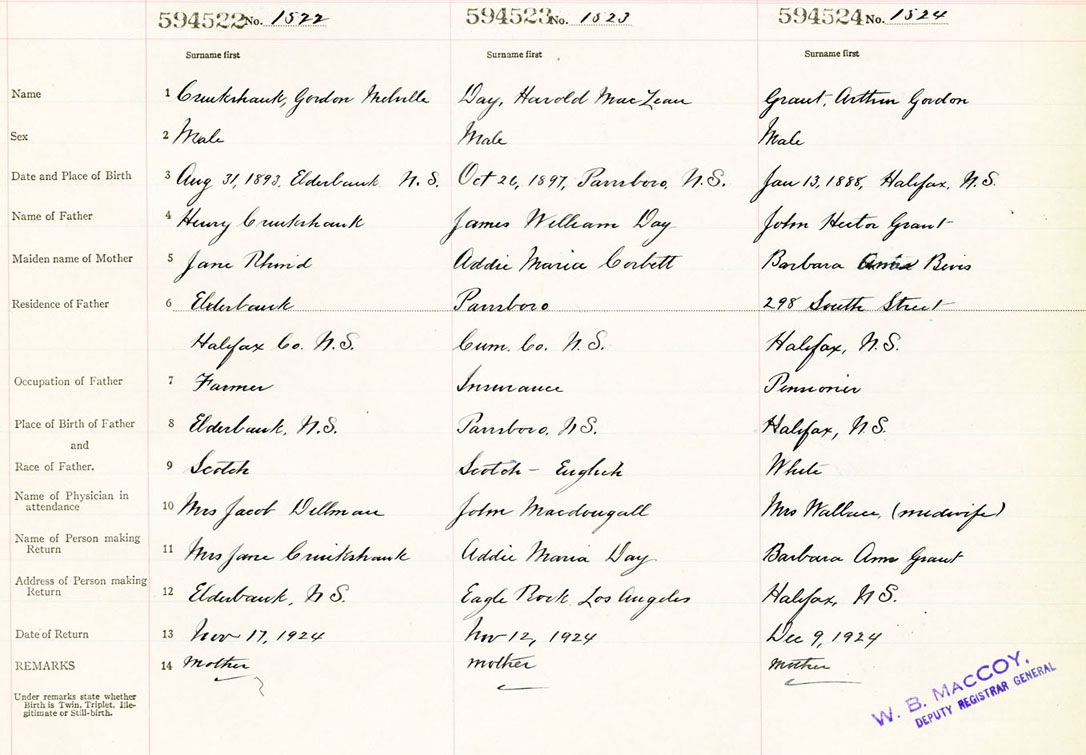 594522 No. 1522 594523 No. 1523 594524 No. 1524
Surname first Surname first Surname first
Name 1 Cruikshank, Gordon Melville Day, Harold MacLean Grant, Arthur Gordon
Sex 2 Male Male Male
Date and Place of Birth 3 Aug 31, 1893, Elderbank N.S. Oct 26, 1897, Parrsboro, N.S. Jan 13, 1888, Halifax, N.S.
Name of Father 4 Henry Cruikshank James William Day John Hector Grant
Maiden name of Mother 5 Jane Addie Maria Corbett Barbara
Residence of Father 6 Elderbank Parrsboro 298 South Street
Halifax Co. N.S. Cum. Co. N.S. Halifax, N.S.
Occupation of Father 7 Farmer Insurance Pensioner
Place of Birth of Father 8 Elderbank, N.S. Parrsboro, N.S. Halifax, N.S.
and
Race of Father. 9 Scotch Scotch - English White
Name of Physician in
attendance 10 Mrs Jacob Dillman John Macdougall Mrs Wallace, (midwife)
Name of Person making
Return 11 Mrs Jane Cruikshank Addie Maria Day Barbara Ann Grant
Address of Person making
Return 12 Elderbank, N.S. Eagle Rock, Los Angeles Halifax, N.S.
Date of Return 13 Nov 17, 1924 Nov 12, 1924 Dec 9, 1924
REMARKS 14 Mother mother mother
Under remarks state whether
Birth is Twin, Triplet, Ille-
gitimate or Still-birth.
W. B. MACCOY,
DEPUTY REGISTRAR GENERAL